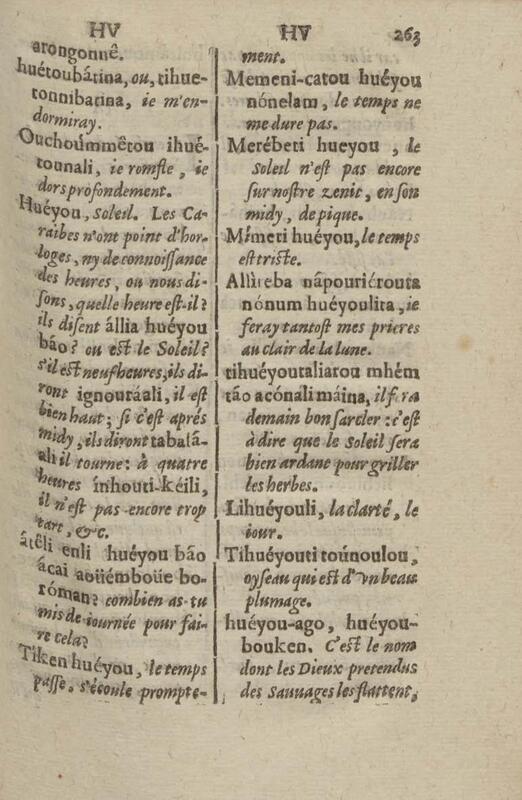 HV
HV
263
arongonnê.
huétoubâtina, ou, tihue-
tonnibatina, ie m'en-
dormiray.
Ouchoúmmêtou ihué-
tounali, ie romfle, ie
dors profondement.
Huéyou, Soleil. Les Ca-
raibes n'ont point d'hor-
loges, ny de connoissance
des heures, ou nous di-
sons, quelle heure est-il?
ils disent állia huéyou
báo? ou est le Soleil?
s'il est neuf heures, ils di-
ront ignoutáali, il est
bien haut; si c'est aprés
midy, ils diront tabatá-
ali il tourne: à quatre
heures ínhouti-kéili,
il n'est pas encore trop
tart, &c.
átêli enli huéyou báo
ácai aoüémboüe bo-
róman? combien as-tu
mis de iournée pour fai-
re cela?
Tíken huéyou, le temps
passe, s'écoule prompte-
ment.
Memeni-catou huéyou
nónelam, le temps ne
me dure pas.
Merébeti hueyou, le
Soleil n'est pas encore
sur nostre zenit, en son
midy, de pique.
Mímeti huéyou, le temps
est triste.
Allíreba nâpouriérouta
nónum huéyoulita, ie
feray tantost mes prieres
au clair de la lune.
tihuéyoutaliarou mhém
tão acónali máina, il fera
demain bon sarcler: c'est
à dire que le Soleil sera
bien ardant pour griller
les herbes.
Lihuéyouli, la clarté, le
iour.
Tihuéyouti toúnoulou,
oyseau qui est d'vn beau
plumage.
huéyou-ago, huéyou-
bouken. C'est le nom
dont les Dieux pretendus
des Sauuages les flattent,